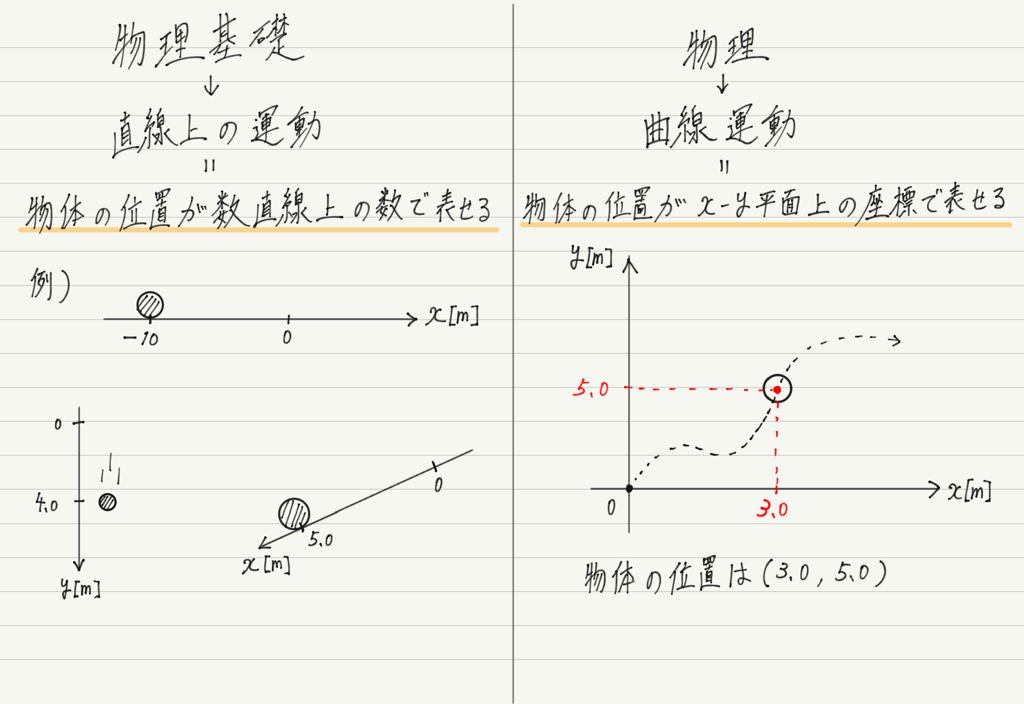 物理基礎
↓
直線上の運動
=
物体の位置が数直線上の数で表せる
例)
x[m]
-10
0
0
4.0
y[m]
0
5.0
x[m]
物理
↓
曲線運動
=
物体の位置がx-y平面上の座標で表せる
y[m]
5.0
0
3.0
x[m]
物体の位置は(3.0, 5.0)